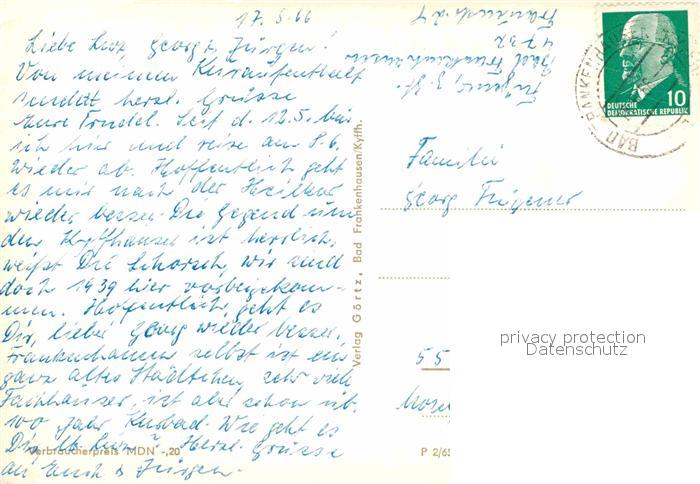 17.5.66
Liebe Georg u. Jürgen!
Von meinem Kuraufenthalt
sendet herzl. Grüsse
Eure Trudel. Seit d. 12.5. bin
ich hier und reise am 8.6.
wieder ab. Hoffentlich geht
es mir nach der Heilkur
wieder besser. Die Gegend um
den Kyffhäuser ist herrlich,
weißt Du Schorsch, wir sind
doch 1939 hier vorbeigekom-
men. Hoffentlich geht es
Dir, lieber Georg wieder besser.
Frankenhausen selbst ist ein
ganz altes Städtchen, sehr viele
Fachhäuser, ist aber schon üb.
100 Jahr Kurbad. Wie geht es
Dir, lb. Herzl. Grüsse
an Euch u. Jürgen.
Verbraucherpreis MDN -,20
Verlag Görtz, Bad Frankenhausen/Kyffh.
P 2/65
z. Zt.
Bad Frankenhausen
4732
BAD FRANKENHAUSEN
10
DEUTSCHE
DEMOKRATISCHE REPUBLIK
Familie
Georg
55
privacy protection
Datenschutz